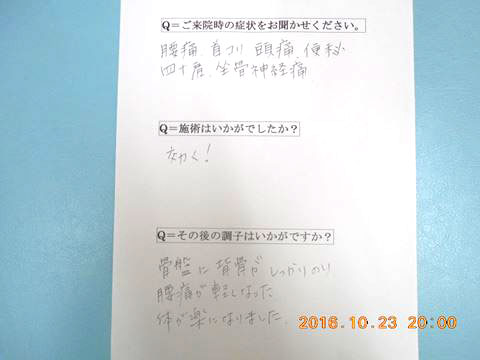 Q＝ご来院時の症状をお聞かせください。
腰痛 首コリ 頭痛、便秘
四十肩、坐骨神経痛
Q＝施術はいかがでしたか？
効く！
Q＝その後の調子はいかがですか？
骨盤に背骨がしっかりのり
腰痛が軽くなった
体が楽になりました。
2016.10.23 20:00